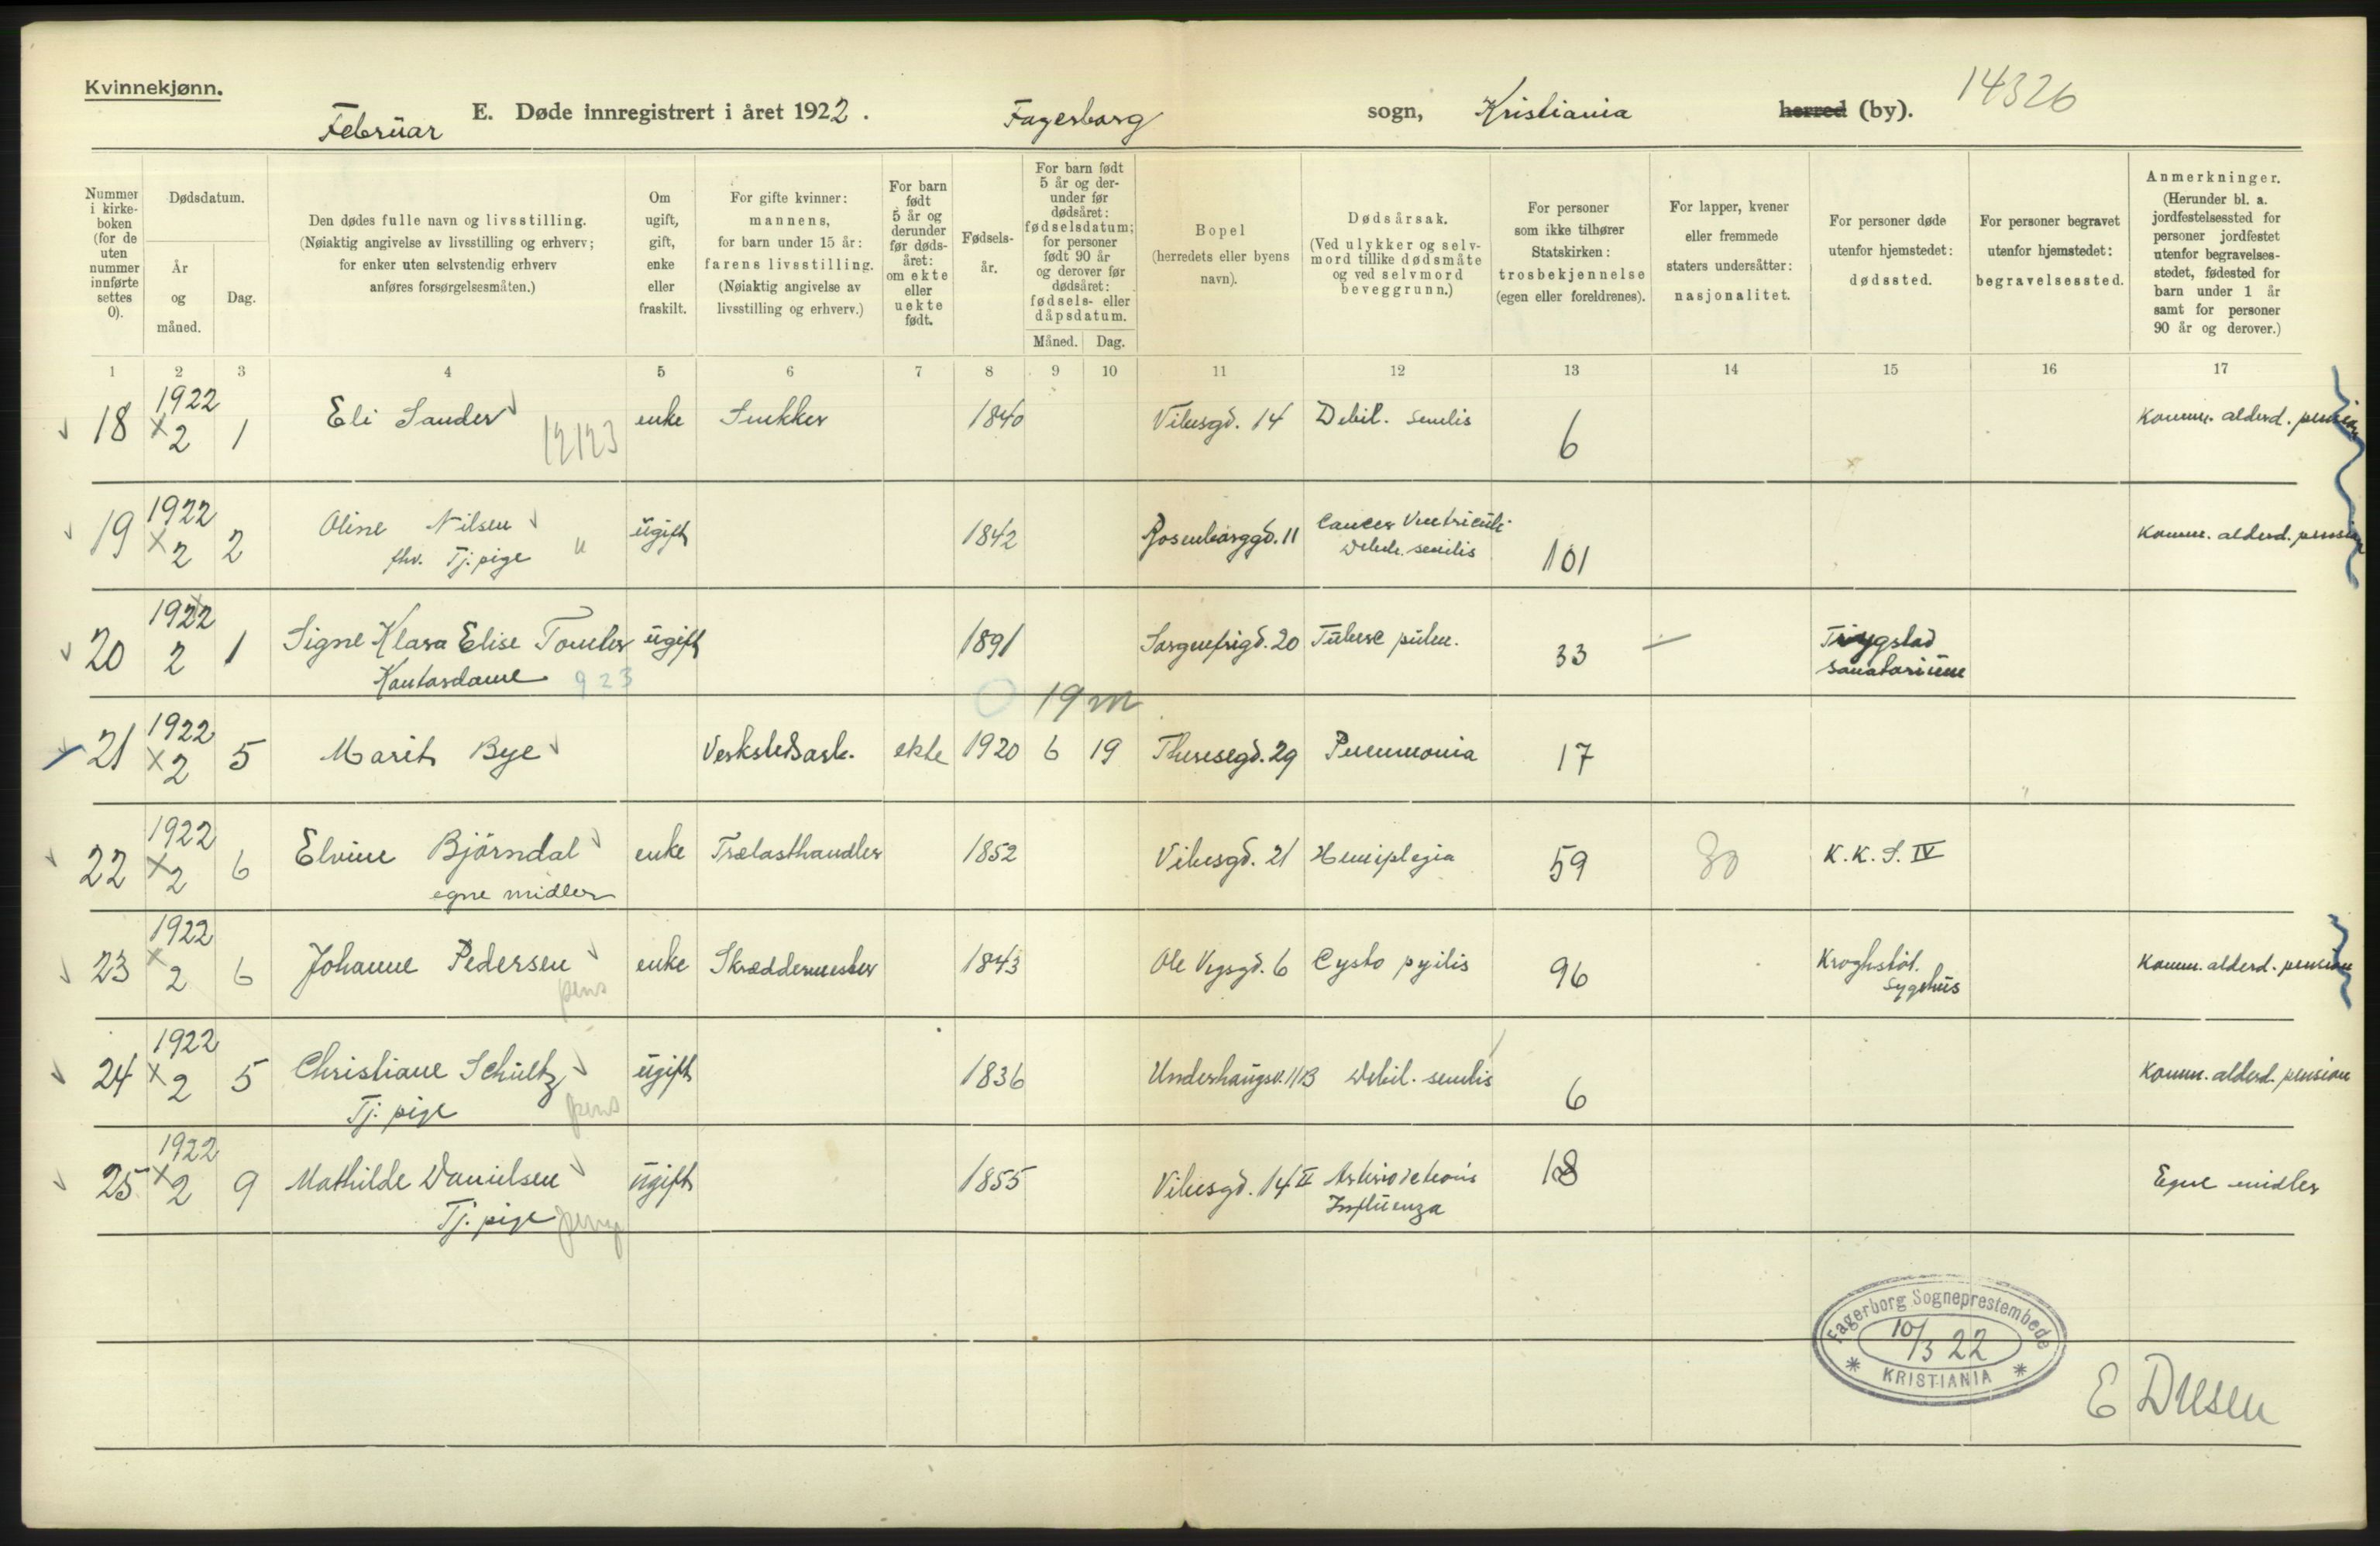 Kvinnekjønn.
Februar E. Døde innregistrert i året 1922. Fagerborg sogn, Kristiania herred (by). 14326
Nummer i kirke-boken (for de uten nummer innførte settes 0).
Dødsdatum.
År og måned.
Dag.
Den dødes fulle navn og livsstilling.
(Nøiaktig angivelse av livsstilling og erhverv;
for enker uten selvstendig erhverv
anføres forsørgelsesmåten.)
Om ugift, gift, enke eller fraskilt.
For gifte kvinner:
mannens,
for barn under 15 år:
farens livsstilling.
(Nøiaktig angivelse av
livsstilling og erhverv.)
For barn født 5 år og derunder før døds-året: om ekte eller uekte født.
Fødsels-år.
For barn født 5 år og der-under før dødsåret: fødselsdatum; for personer født 90 år og derover før dødsåret: fødsels- eller dåpsdatum.
Måned. Dag.
Bopel
(herredets eller byens
navn).
Dødsårsak.
(Ved ulykker og selv-
mord tillike dødsmåte
og ved selvmord
beveggrunn.)
For personer
som ikke tilhører
Statskirken:
trosbekjennelse
(egen eller foreldrenes).
For lapper, kvener
eller fremmede
staters undersåtter:
nasjonalitet.
For personer døde
utenfor hjemstedet:
dødssted.
For personer begravet
utenfor hjemstedet:
begravelsessted.
Anmerkninger.
(Herunder bl. a.
jordfestelsessted for
personer jordfestet
utenfor begravelses-
stedet, fødested for
barn under 1 år
samt for personer
90 år og derover.)
1 2 3 4 5 6 7 8 9 10 11 12 13 14 15 16 17
18 1922 x 2 1 Eli Sander enke Snekker 1840 Vibesgd. 14 Debil. senilis 6 Komm. alderd. pension
12123
19 1922 x 2 2 Oline Nilsen ugift 1842 Rosenborggd. 11 Cancer Ventriculi 101 Komm. alderd. pension
fhv. Tj. pige " Debil. senilis
20 1922 2 1 Signe Klara Elise Tomter ugift 1891 Sorgenfrigd. 20 Tuberc pulm. 33 — Trygstad
Kontordame 923 Sanatorium
19 m
21 1922 x 2 5 Marit Bye Verkstedarb. ekte 1920 6 19 Theresegd. 29 Pneumonia 17
22 1922 x 2 6 Elvine Björndal enke Trælasthandler 1852 Vibesgd. 21 Hemiplegia 59 30 K. K. S. IV
egne midler
23 1922 x 2 6 Johanne Pedersen enke Skræddermester 1843 Ole Vigsgd. 6 Cysto pyitis 96 Kroghstöt. Komm. alderd. pension
pens Sygehus
24 1922 x 2 5 Christiane Schultz ugift 1836 Underhaugsv. 11B Debil. senilis 6 Komm. alderd. pension
Tj. pige pens
25 1922 x 2 9 Mathilde Danielsen ugift 1855 Vibesgd. 14 II 18 Egne midler
Tj. pige Influenza
Fagerborg Sogneprestembede
10/3 22
* KRISTIANIA *